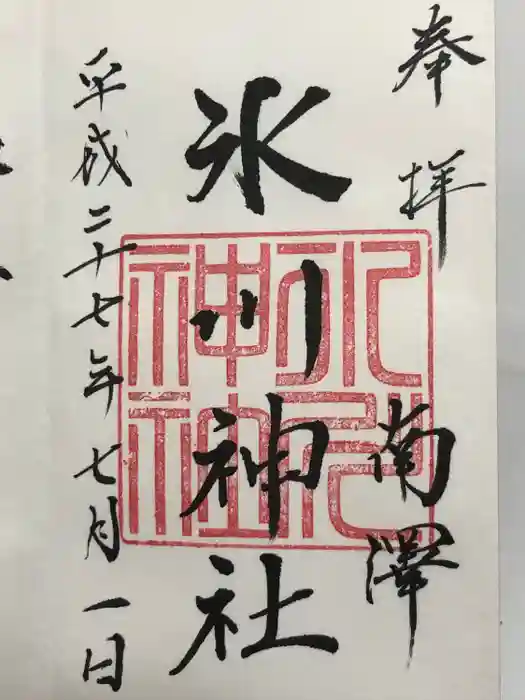 奉拝
南澤
氷川神社
平成二十七年七月一日
氷川神社